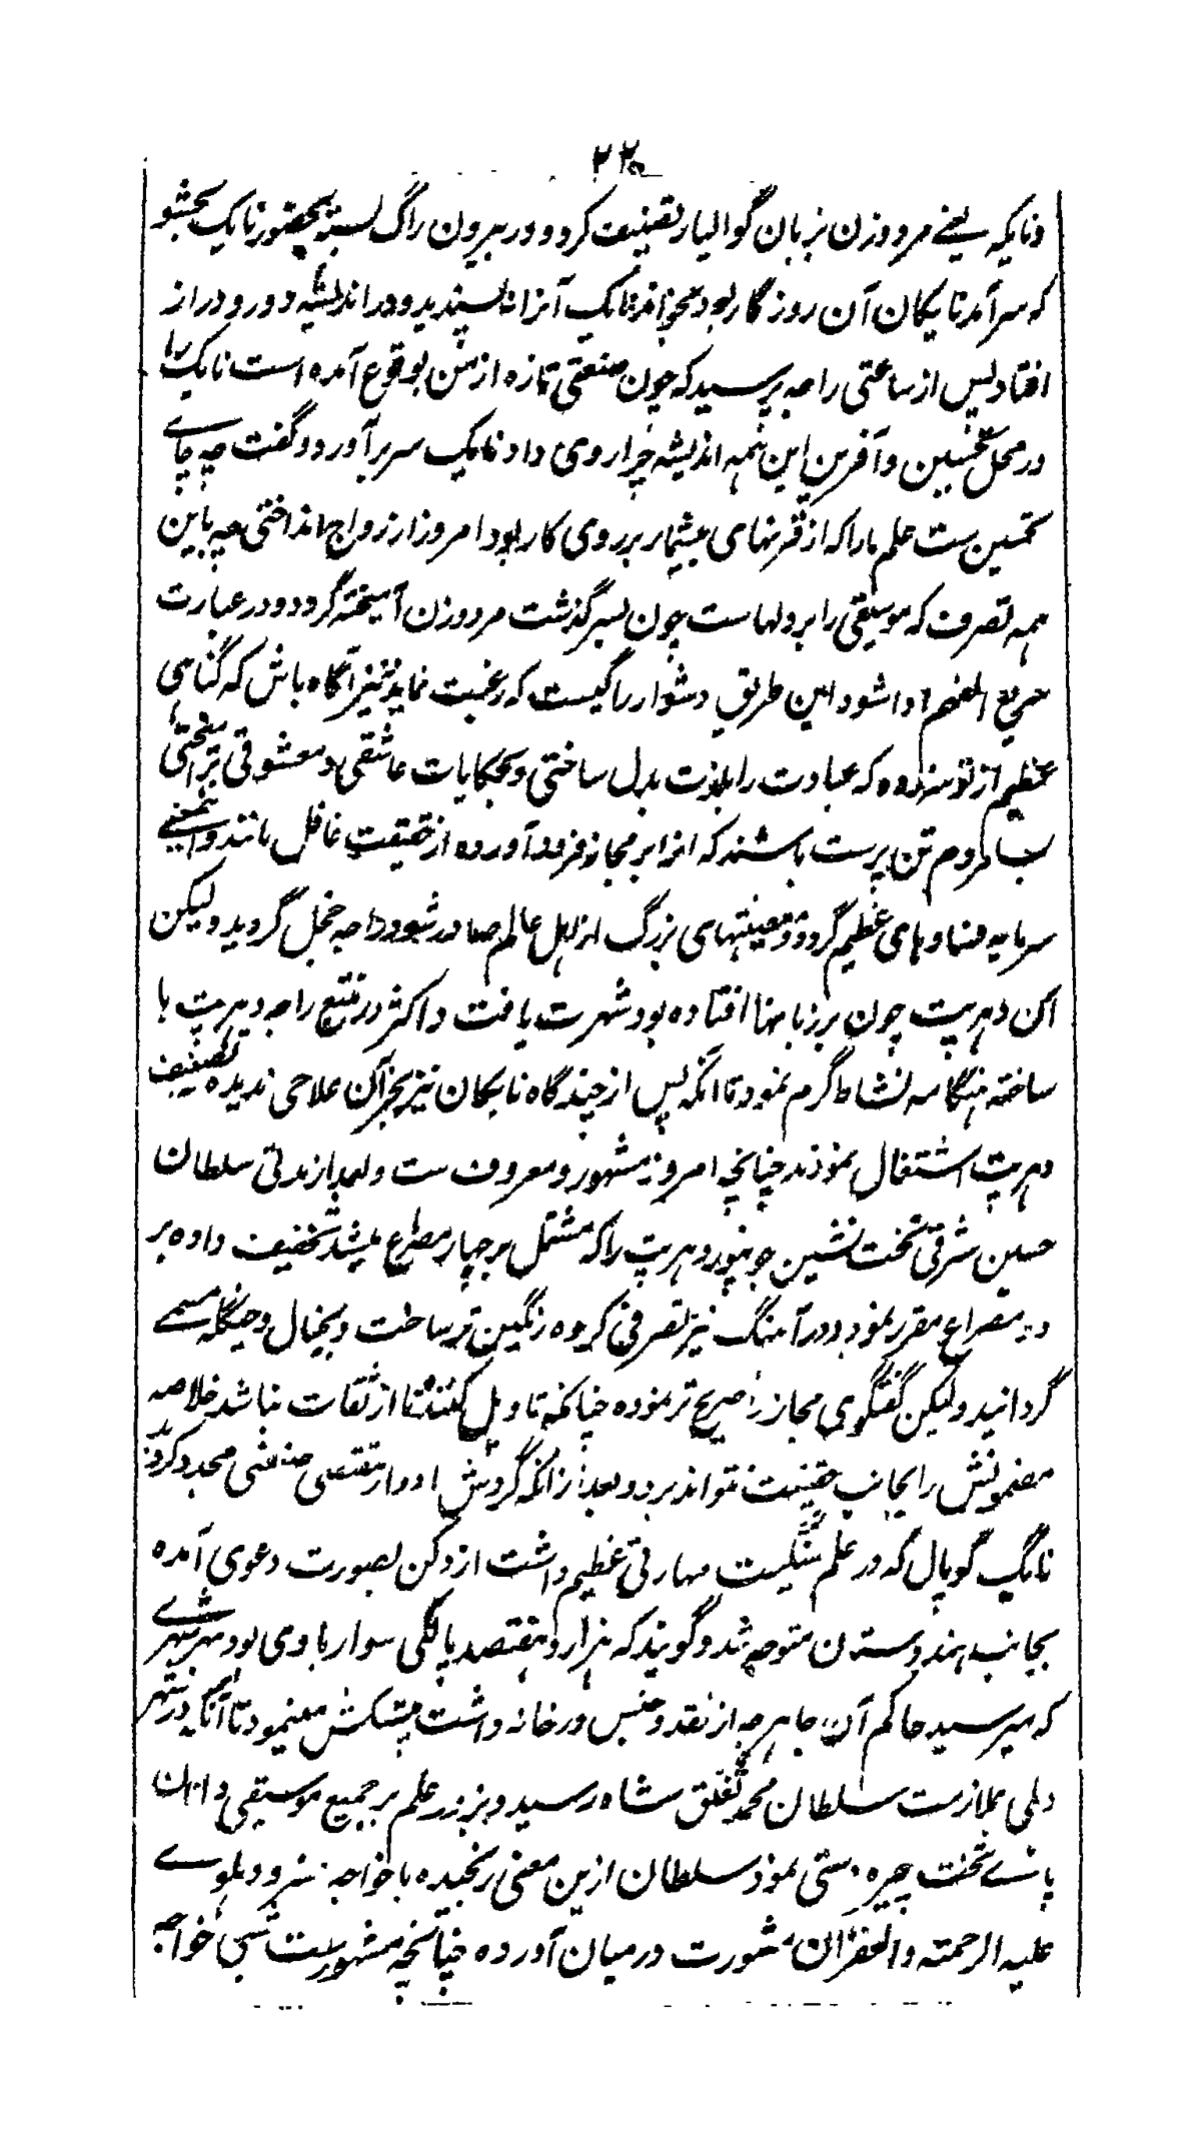 ۲۲۰
ونایکه یعنی مرد و زن بزبان گوالیار تصنیف کرد و در بیرون راگ بسته بحضور نایک بخشو
که سرآمد نایکان آن روزگار بود بخواند نایک آنرا نا پسندید و در اندیشه دور و دراز
افتاد پس از ساعتی راجه پرسید که چون صنعتی تازه از من بوقوع آمده است نایک را
در محل تحسین و آفرین این همه اندیشه چرا روی داد نایک سر برآورد و گفت چه جاے
تحسین ست علم ما را که از قرنهای بیشمار بر روی کار بود امروز از رواج انداختی چه باین
همه تصرف که موسیقی را بر دلهاست چون بسرگذشت مرد و زن آمیخته گردد و در عبارت
سریع الفهم ادا شود این طریق دشوار را کیست که رغبت نماید نیز آگاه باش که گناهی
عظیم از تو سرزده که عبادت را بلذت بدل ساختی و بحکایات عاشقی و معشوقی برآمیختی
بسا مردم تن پرست باشند که آنرا بر مجاز فرود آورده از حقیقت غافل مانند و اینمعنی
سرمایه فسادهای عظیم گردد و معصیتهای بزرگ از اهل عالم صادر شود راجه خجل گردید ولیکن
آن دهرپت چون بر زبانها افتاده بود شهرت یافت و اکثر در تتبع راجه دهرپت ها
ساخته هنگامه نشاط گرم نمود تا آنکه پس از چندگاه نایکان نیز بجز آن علاجی ندیده بتصنیف
دهرپت اشتغال نمودند چنانچه امروز مشهور و معروف ست و بعد از مدتی سلطان
حسین شرقی تخت نشین جونپور دهرپت را که مشتمل بر چهار مصرع میشد تخفیف داده بر
دو مصراع مقرر نمود و در آهنگ نیز تصرفی کرده رنگین تر ساخت و بخیال و چنکله مسمے
گردانید ولیکن گفتگوی مجاز را صریح تر نموده چنانکه تاویل کننده تا از ثقات نباشد خلاصه
مضمونش را بجانب حقیقت نتواند برد و بعد از آنکه گردش ادوار مقتضی صنعتی مجدد گردید
نایک گوپال که در علم سنگیت مهارتی عظیم داشت از دکن بصورت دعوی آمده
بجانب هندوستان متوجه شد و گویند که هزار و هفتصد پالکی سوار با وی بود بهر شهرے
که میرسید حاکم آن جا هر چه از نقد و جنس در خانه داشت پیشکش مینمود تا آنکه در شهر
دهلی بملازمت سلطان محمد تغلق شاه رسید و بزور علم بر جمیع موسیقی دانان
پاے تخت چیره دستی نمود سلطان ازین معنی رنجیده با خواجه خسرو دهلوے
علیه الرحمته والغفران مشورت در میان آورده چنانچه مشهورست شبی خواجه